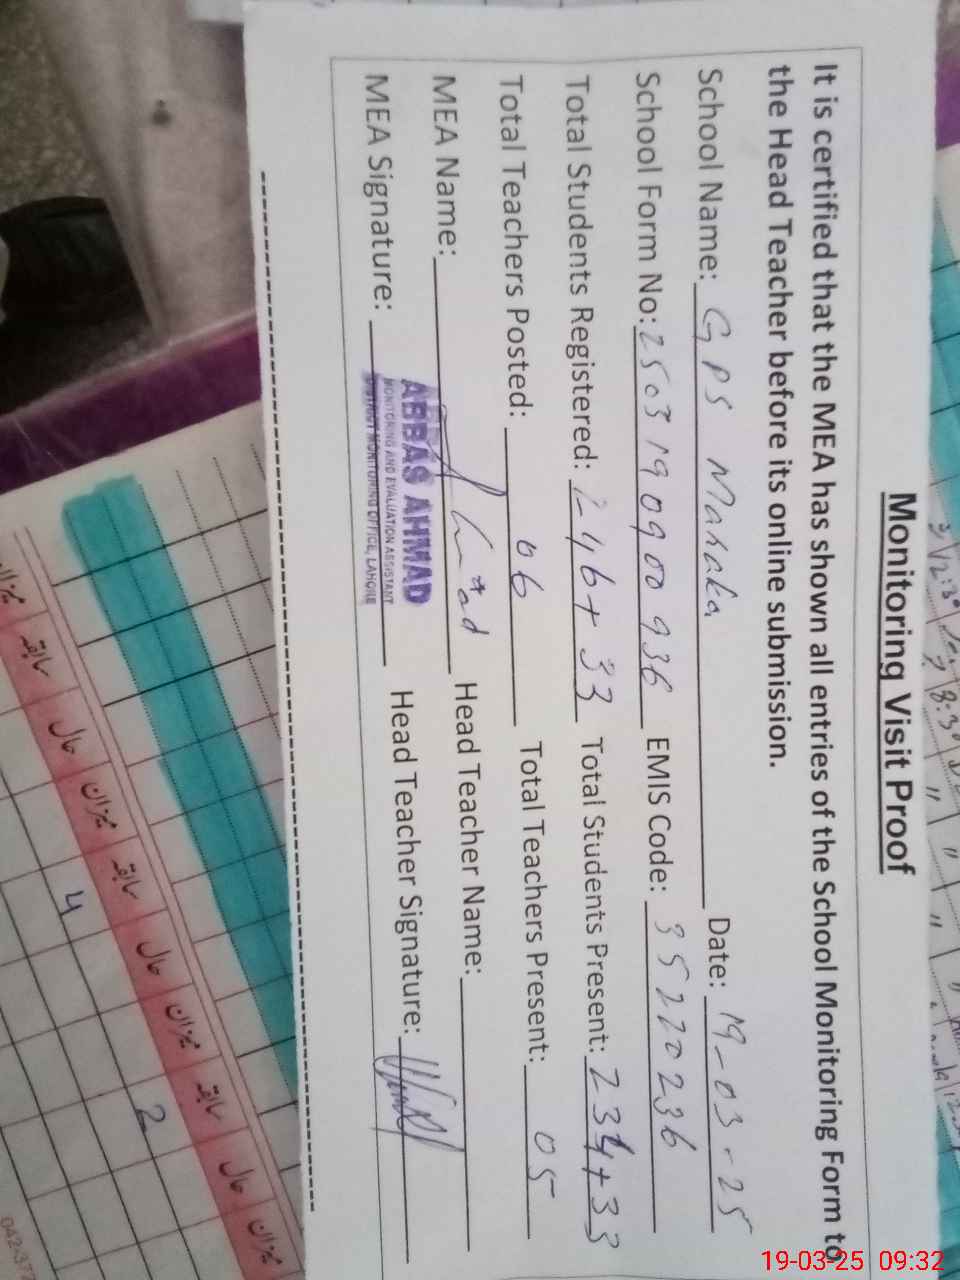 Monitoring Visit Proof
It is certified that the MEA has shown all entries of the School Monitoring Form to
the Head Teacher before its online submission.
School Name: GPS Maraka Date: 19-03-25
School Form No: 2503190900936 EMIS Code: 35220236
Total Students Registered: 246+33 Total Students Present: 234+33
Total Teachers Posted: 06 Total Teachers Present: 05
MEA Name: Head Teacher Name:
MEA Signature: Head Teacher Signature:
ABBAS AHMAD
MONITORING AND EVALUATION ASSISTANT
DISTRICT MONITORING OFFICE, LAHORE
میزان سابقہ حال میزان سابقہ حال میزان سابقہ حال میزان
4
2
19-03-25 09:32